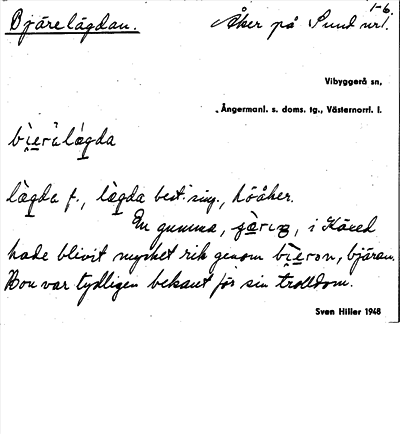 Bjärelägdan. Åker på Sund nr 1.
1-6.
Vibyggerå sn,
Ångermanl. s. doms. tg., Västernorrl. l.
lägda f., lägda best. sing., höåker.
En gumma, i Käxed
hade blivit mycket rik genom bjäran.
Hon var tydligen bekant för sin trolldom.
Sven Hiller 1948